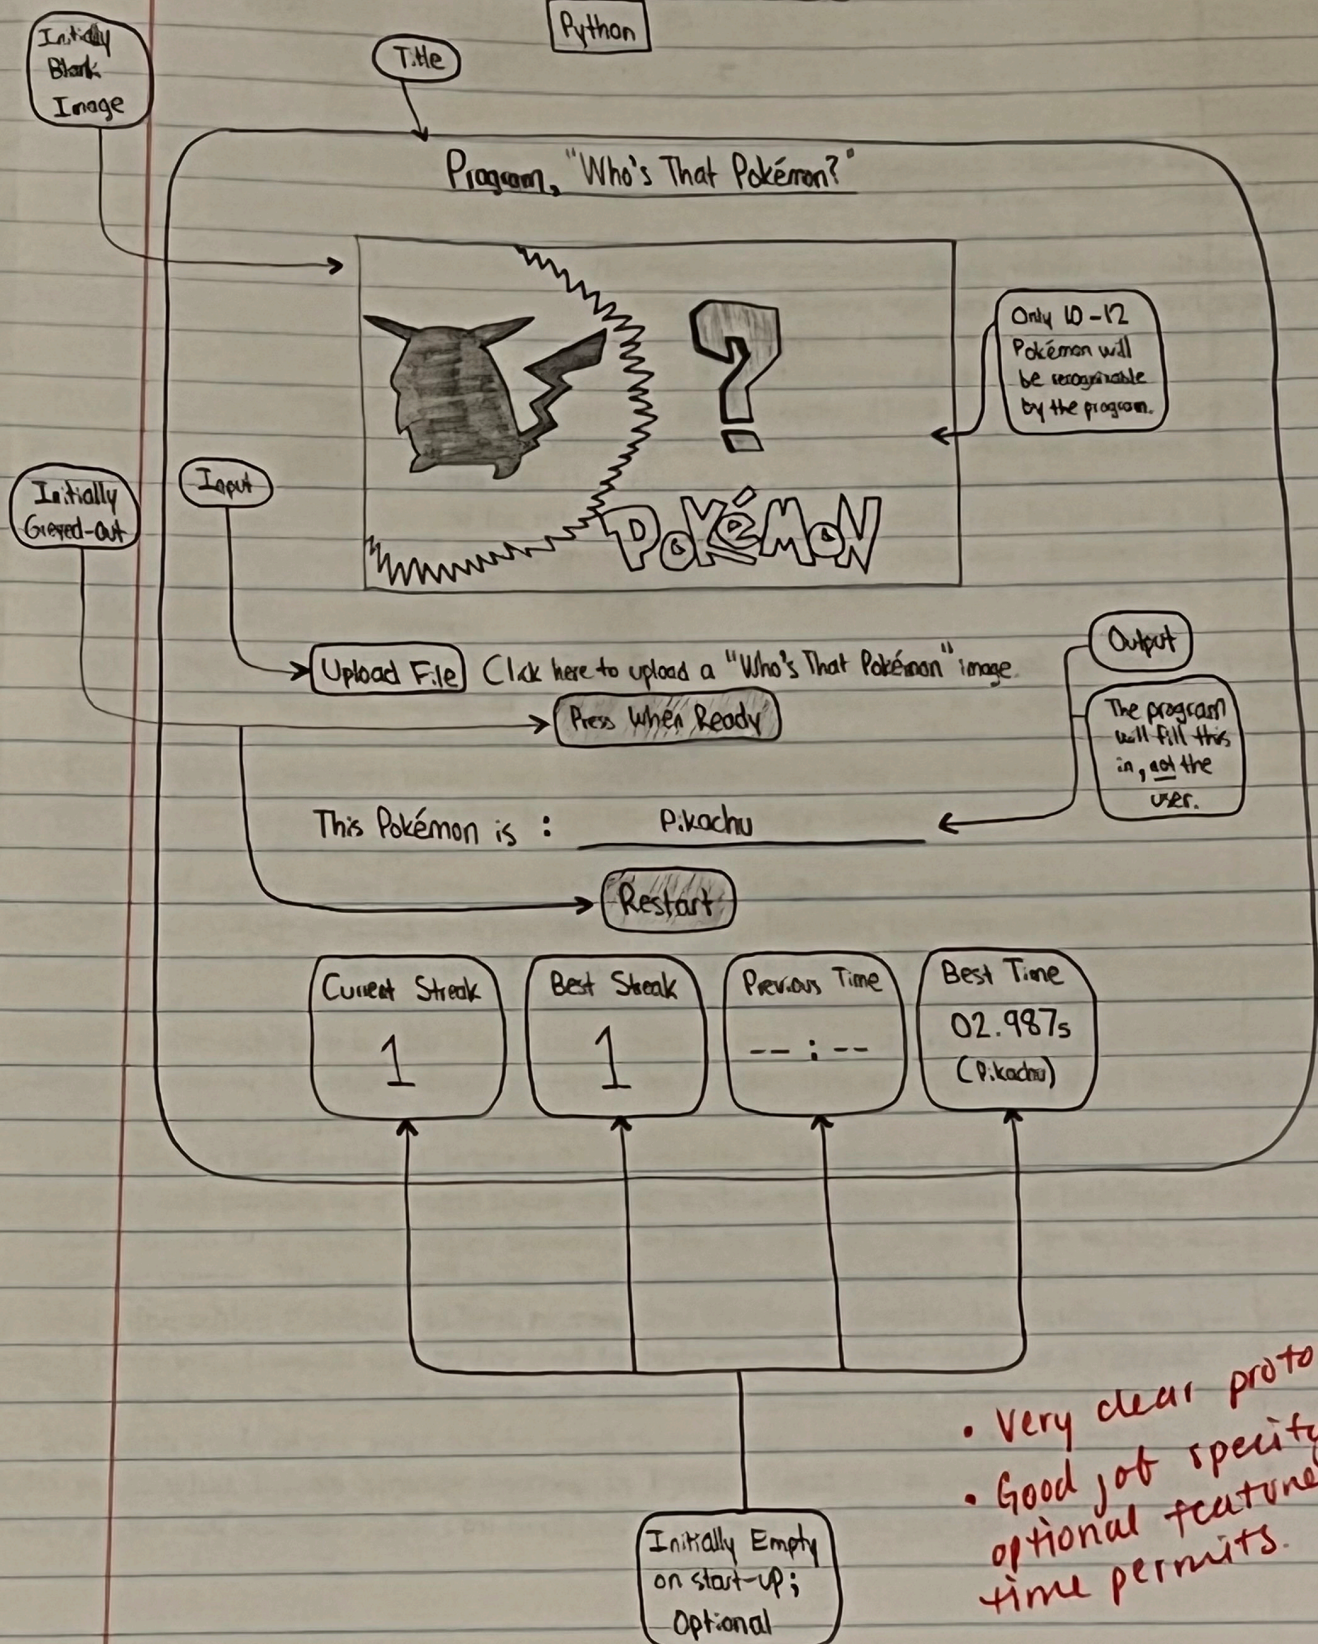 Python
Initially
Blank
Image
Title
Program, "Who's That Pokémon?"
?
POKéMON
Only 10-12
Pokémon will
be recognizable
by the program.
Initially
Greyed-out
Input
Upload File Click here to upload a "Who's That Pokémon" image.
Press When Ready
Output
The program
will fill this
in, not the
user.
This Pokémon is : Pikachu
Restart
Current Streak
1
Best Streak
1
Previous Time
-- : --
Best Time
02.987s
(Pikachu)
Initially Empty
on start-up;
Optional
• Very clear proto
• Good job specify
optional feature
time permits.